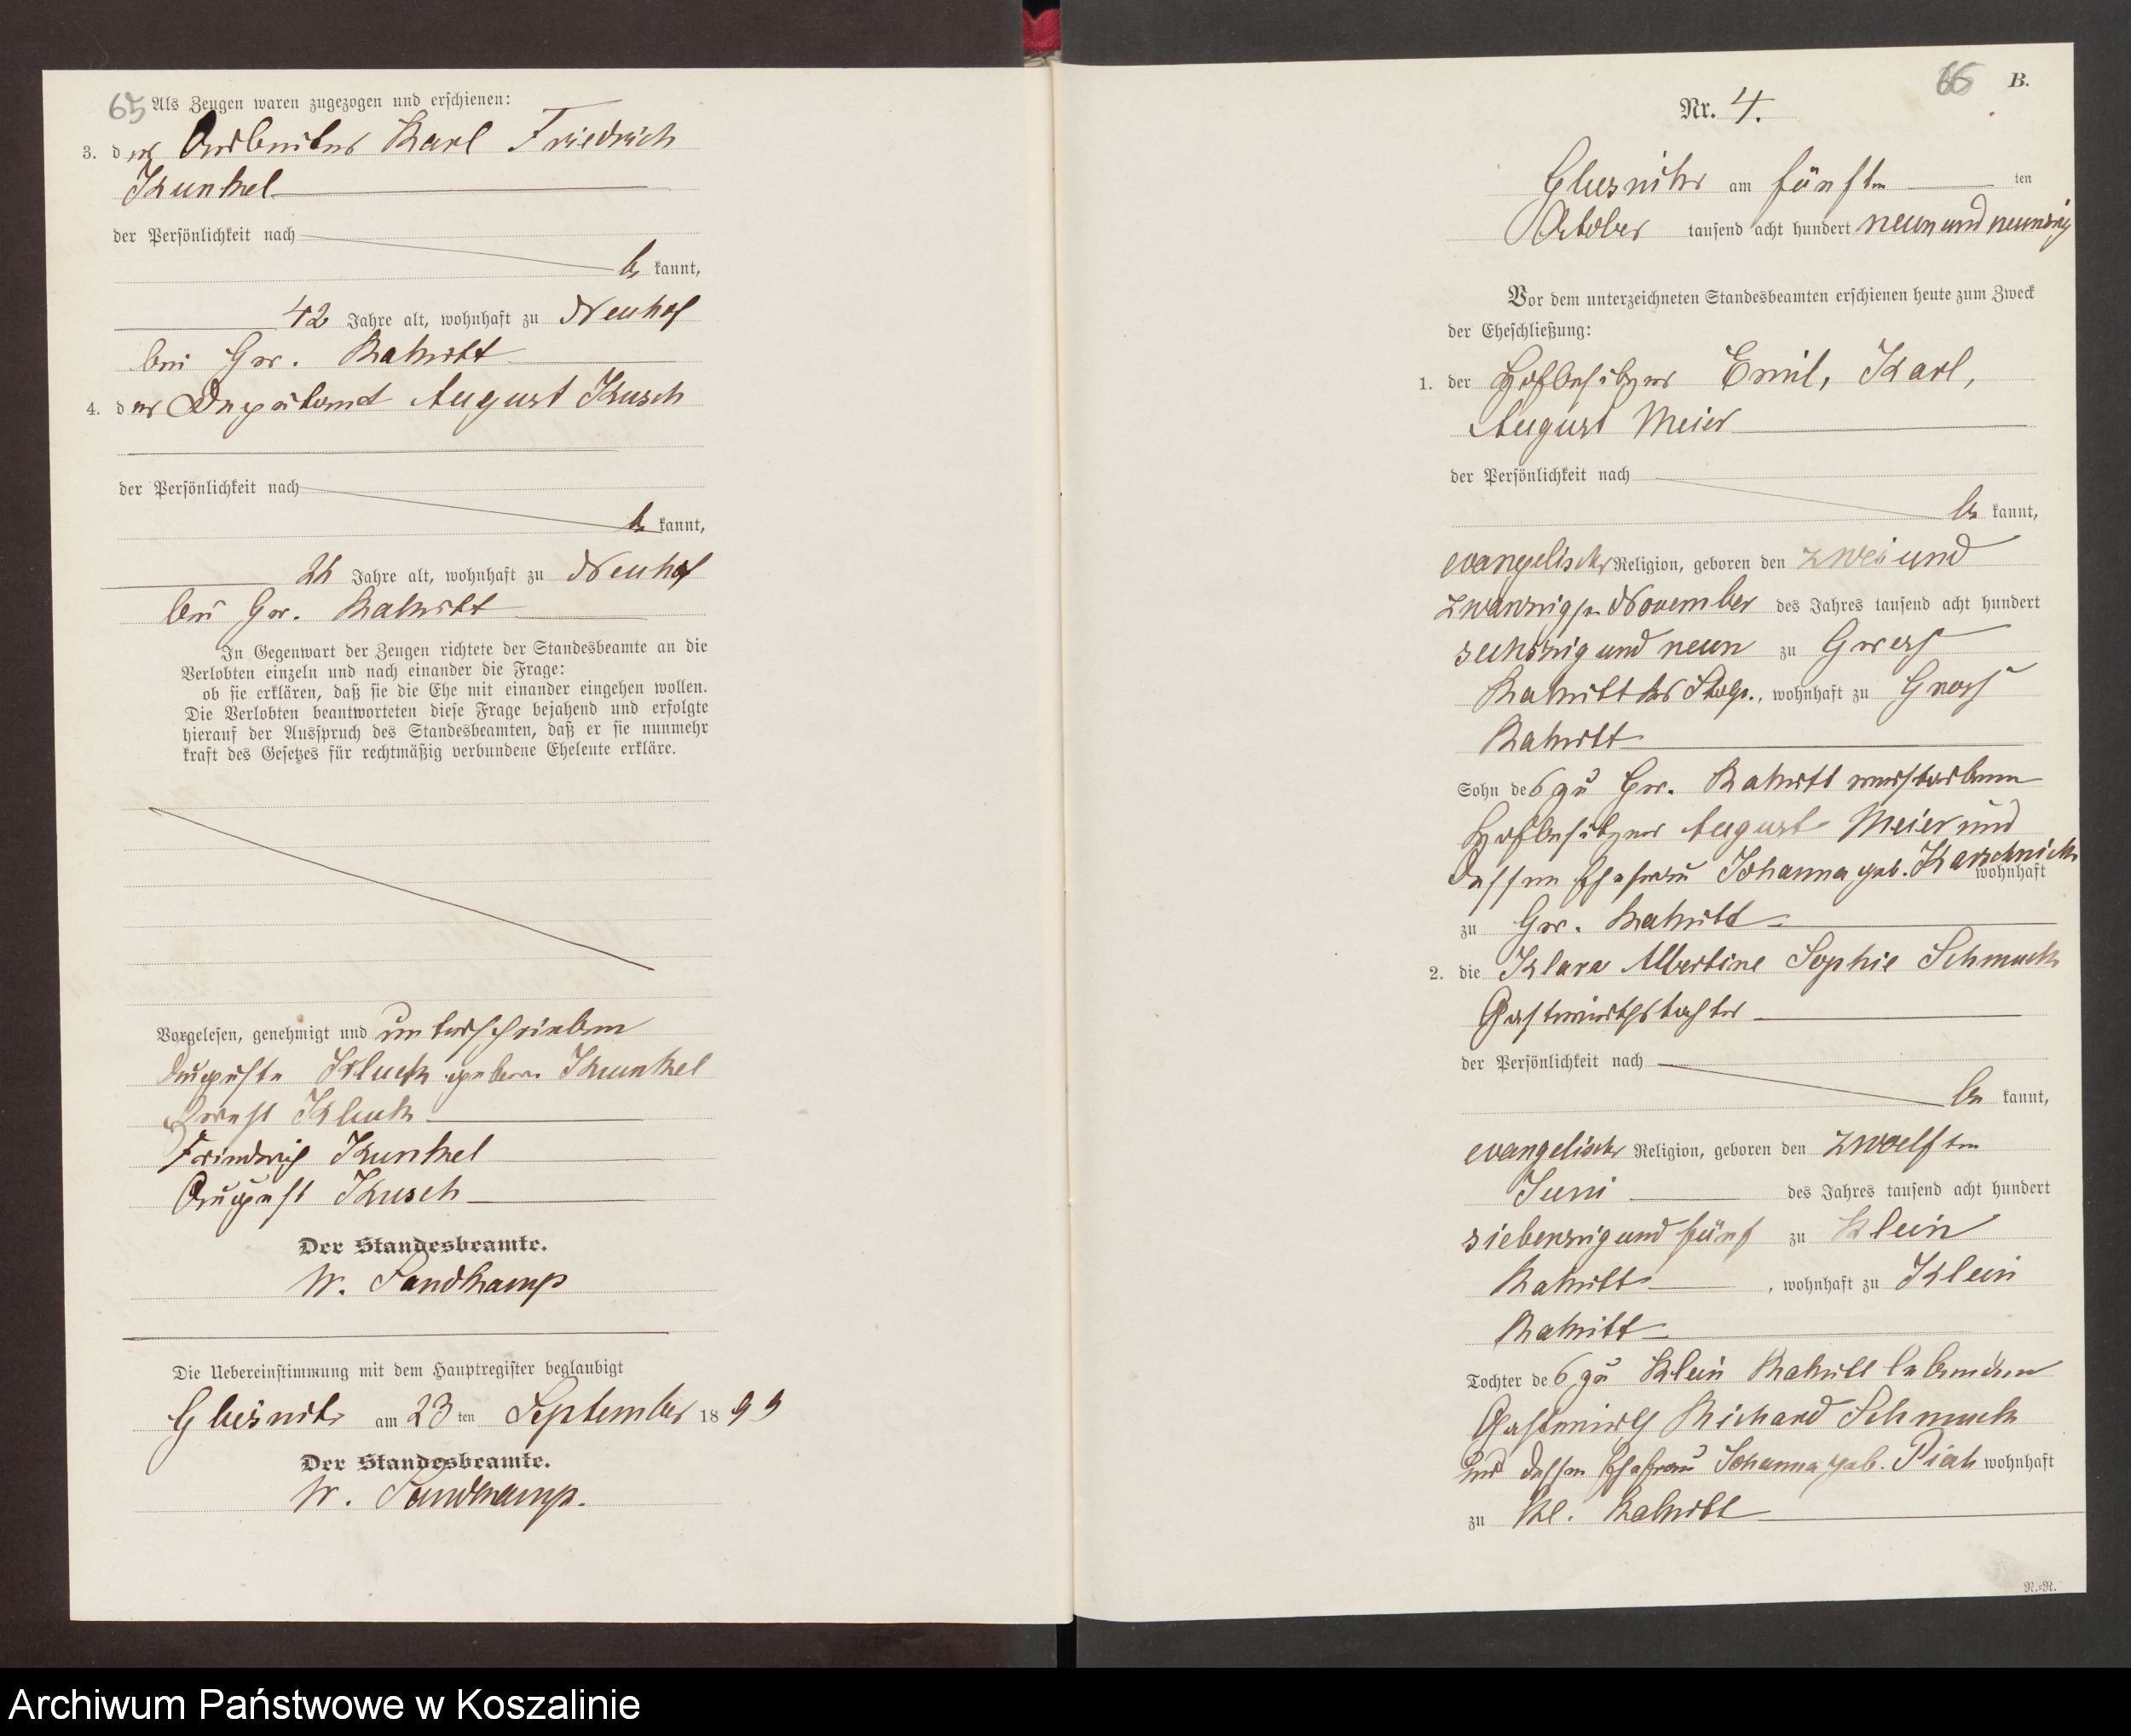 65 Als Zeugen waren zugezogen und erschienen:
3. der Arbeiter Karl Friedrich
Kunkel
der Persönlichkeit nach
be kannt,
42 Jahre alt, wohnhaft zu Neuhof
bei Gr. Rakitt
4. der Deputant August Kusch
der Persönlichkeit nach
be kannt,
Jahre alt, wohnhaft zu Neuhof
bei Gr. Rakitt
In Gegenwart der Zeugen richtete der Standesbeamte an die
Verlobten einzeln und nach einander die Frage:
ob sie erklären, daß sie die Ehe mit einander eingehen wollen.
Die Verlobten beantworteten diese Frage bejahend und erfolgte
hierauf der Ausspruch des Standesbeamten, daß er sie nunmehr
kraft des Gesetzes für rechtmäßig verbundene Eheleute erkläre.
Vorgelesen, genehmigt und unterschrieben
Auguste Kluck geborn. Kunkel
Ernst Kluck
Friedrich Kunkel
August Kusch
Der Standesbeamte.
W. Sandkamp
Die Uebereinstimmung mit dem Hauptregister beglaubigt
Glusnitz am 23 ten September 18 99
Der Standesbeamte.
W. Sandkamp.
66 B.
Nr. 4.
Glusnitz am fünften ten
October tausend acht hundert neun und neunzig
Vor dem unterzeichneten Standesbeamten erschienen heute zum Zweck
der Eheschließung:
1. der Hofbesitzer Emil, Karl,
August Meier
der Persönlichkeit nach
be kannt,
evangelischer Religion, geboren den zwei und
zwanzigsten November des Jahres tausend acht hundert
sechszig und neun zu Gross
Rakitt Kr Stolp., wohnhaft zu Gross
Rakitt
Sohn des zu Gr. Rakitt verstorbenen
Hofbesitzer August Meier und
dessen Ehefrau Johanna geb. Karschnick
wohnhaft
zu Gr. Rakitt
2. die Klara Albertine Sophie Schmuck
Gastwirthstochter
der Persönlichkeit nach
be kannt,
evangelischer Religion, geboren den zwoelften
Juni des Jahres tausend acht hundert
siebenzig und fünf zu Klein
Rakitt, wohnhaft zu Klein
Rakitt
Tochter des zu Klein Rakitt lebenden
Gastwirth Richard Schmuck
und dessen Ehefrau Johanna geb. wohnhaft
zu Kl. Rakitt
R.=R.
Archiwum Państwowe w Koszalinie